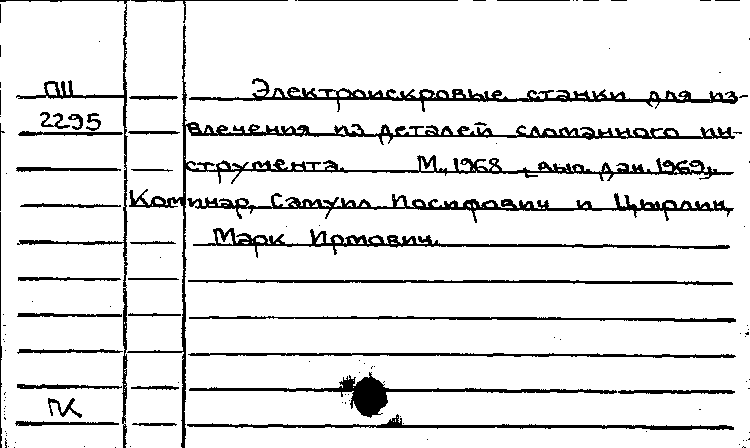 ПII Электроискровые станки для из-
2295 влечения из деталей сломанного ин-
струмента. М., 1968, вып. дан. 1969,
Коминар, Самуил Иосифович и Цырлин,
Марк Ирмович.
ПК